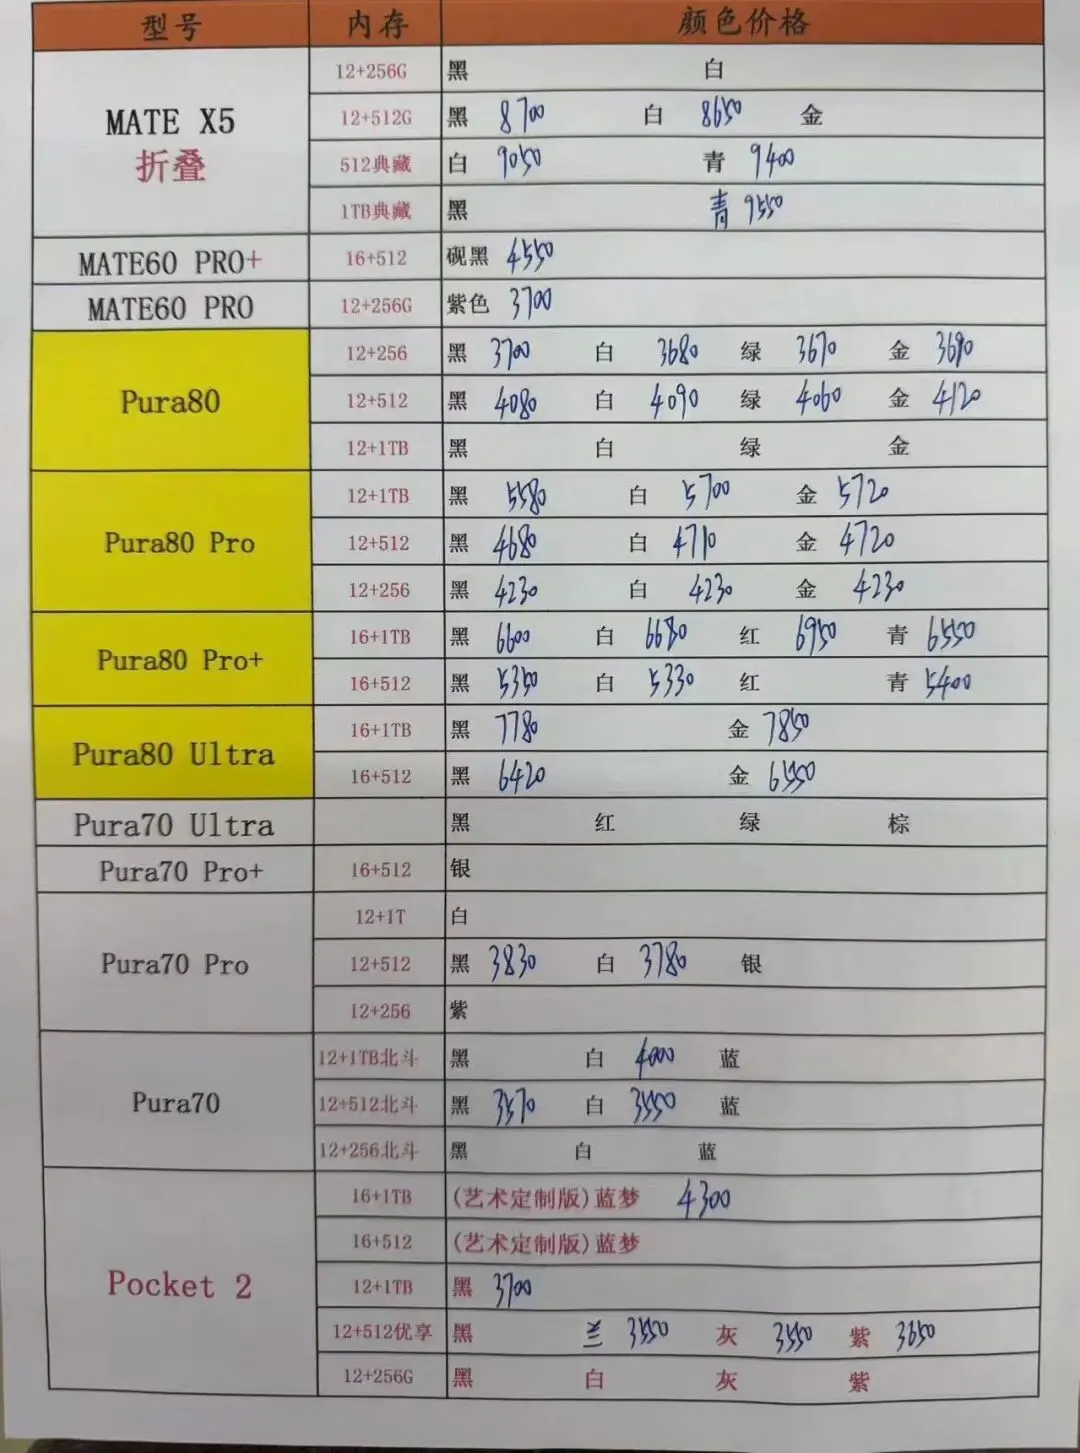 型号 内存 颜色价格
12+256G 黑 白
MATE X5 12+512G 黑 8700 白 8650 金
折叠 512典藏 白 9050 青 9400
1TB典藏 黑 青 9550
MATE60 PRO+ 16+512 砚黑 4550
MATE60 PRO 12+256G 紫色 3700
12+256 黑 3700 白 3680 绿 3670 金 3690
Pura80 12+512 黑 4080 白 4090 绿 4060 金 4120
12+1TB 黑 白 绿 金
12+1TB 黑 5580 白 5700 金 5720
Pura80 Pro 12+512 黑 4680 白 4710 金 4720
12+256 黑 4230 白 4230 金 4230
Pura80 Pro+ 16+1TB 黑 6600 白 6680 红 6950 青 6550
16+512 黑 5350 白 5330 红 青 5400
Pura80 Ultra 16+1TB 黑 7780 金 7850
16+512 黑 6420 金 6550
Pura70 Ultra 黑 红 绿 棕
Pura70 Pro+ 16+512 银
12+1T 白
Pura70 Pro 12+512 黑 3830 白 3780 银
12+256 紫
12+1TB北斗 黑 白 4000 蓝
Pura70 12+512北斗 黑 3570 白 3550 蓝
12+256北斗 黑 白 蓝
16+1TB (艺术定制版)蓝梦 4300
16+512 (艺术定制版)蓝梦
Pocket 2 12+1TB 黑 3700
12+512优享 黑 兰 3550 灰 3550 紫 3650
12+256G 黑 白 灰 紫